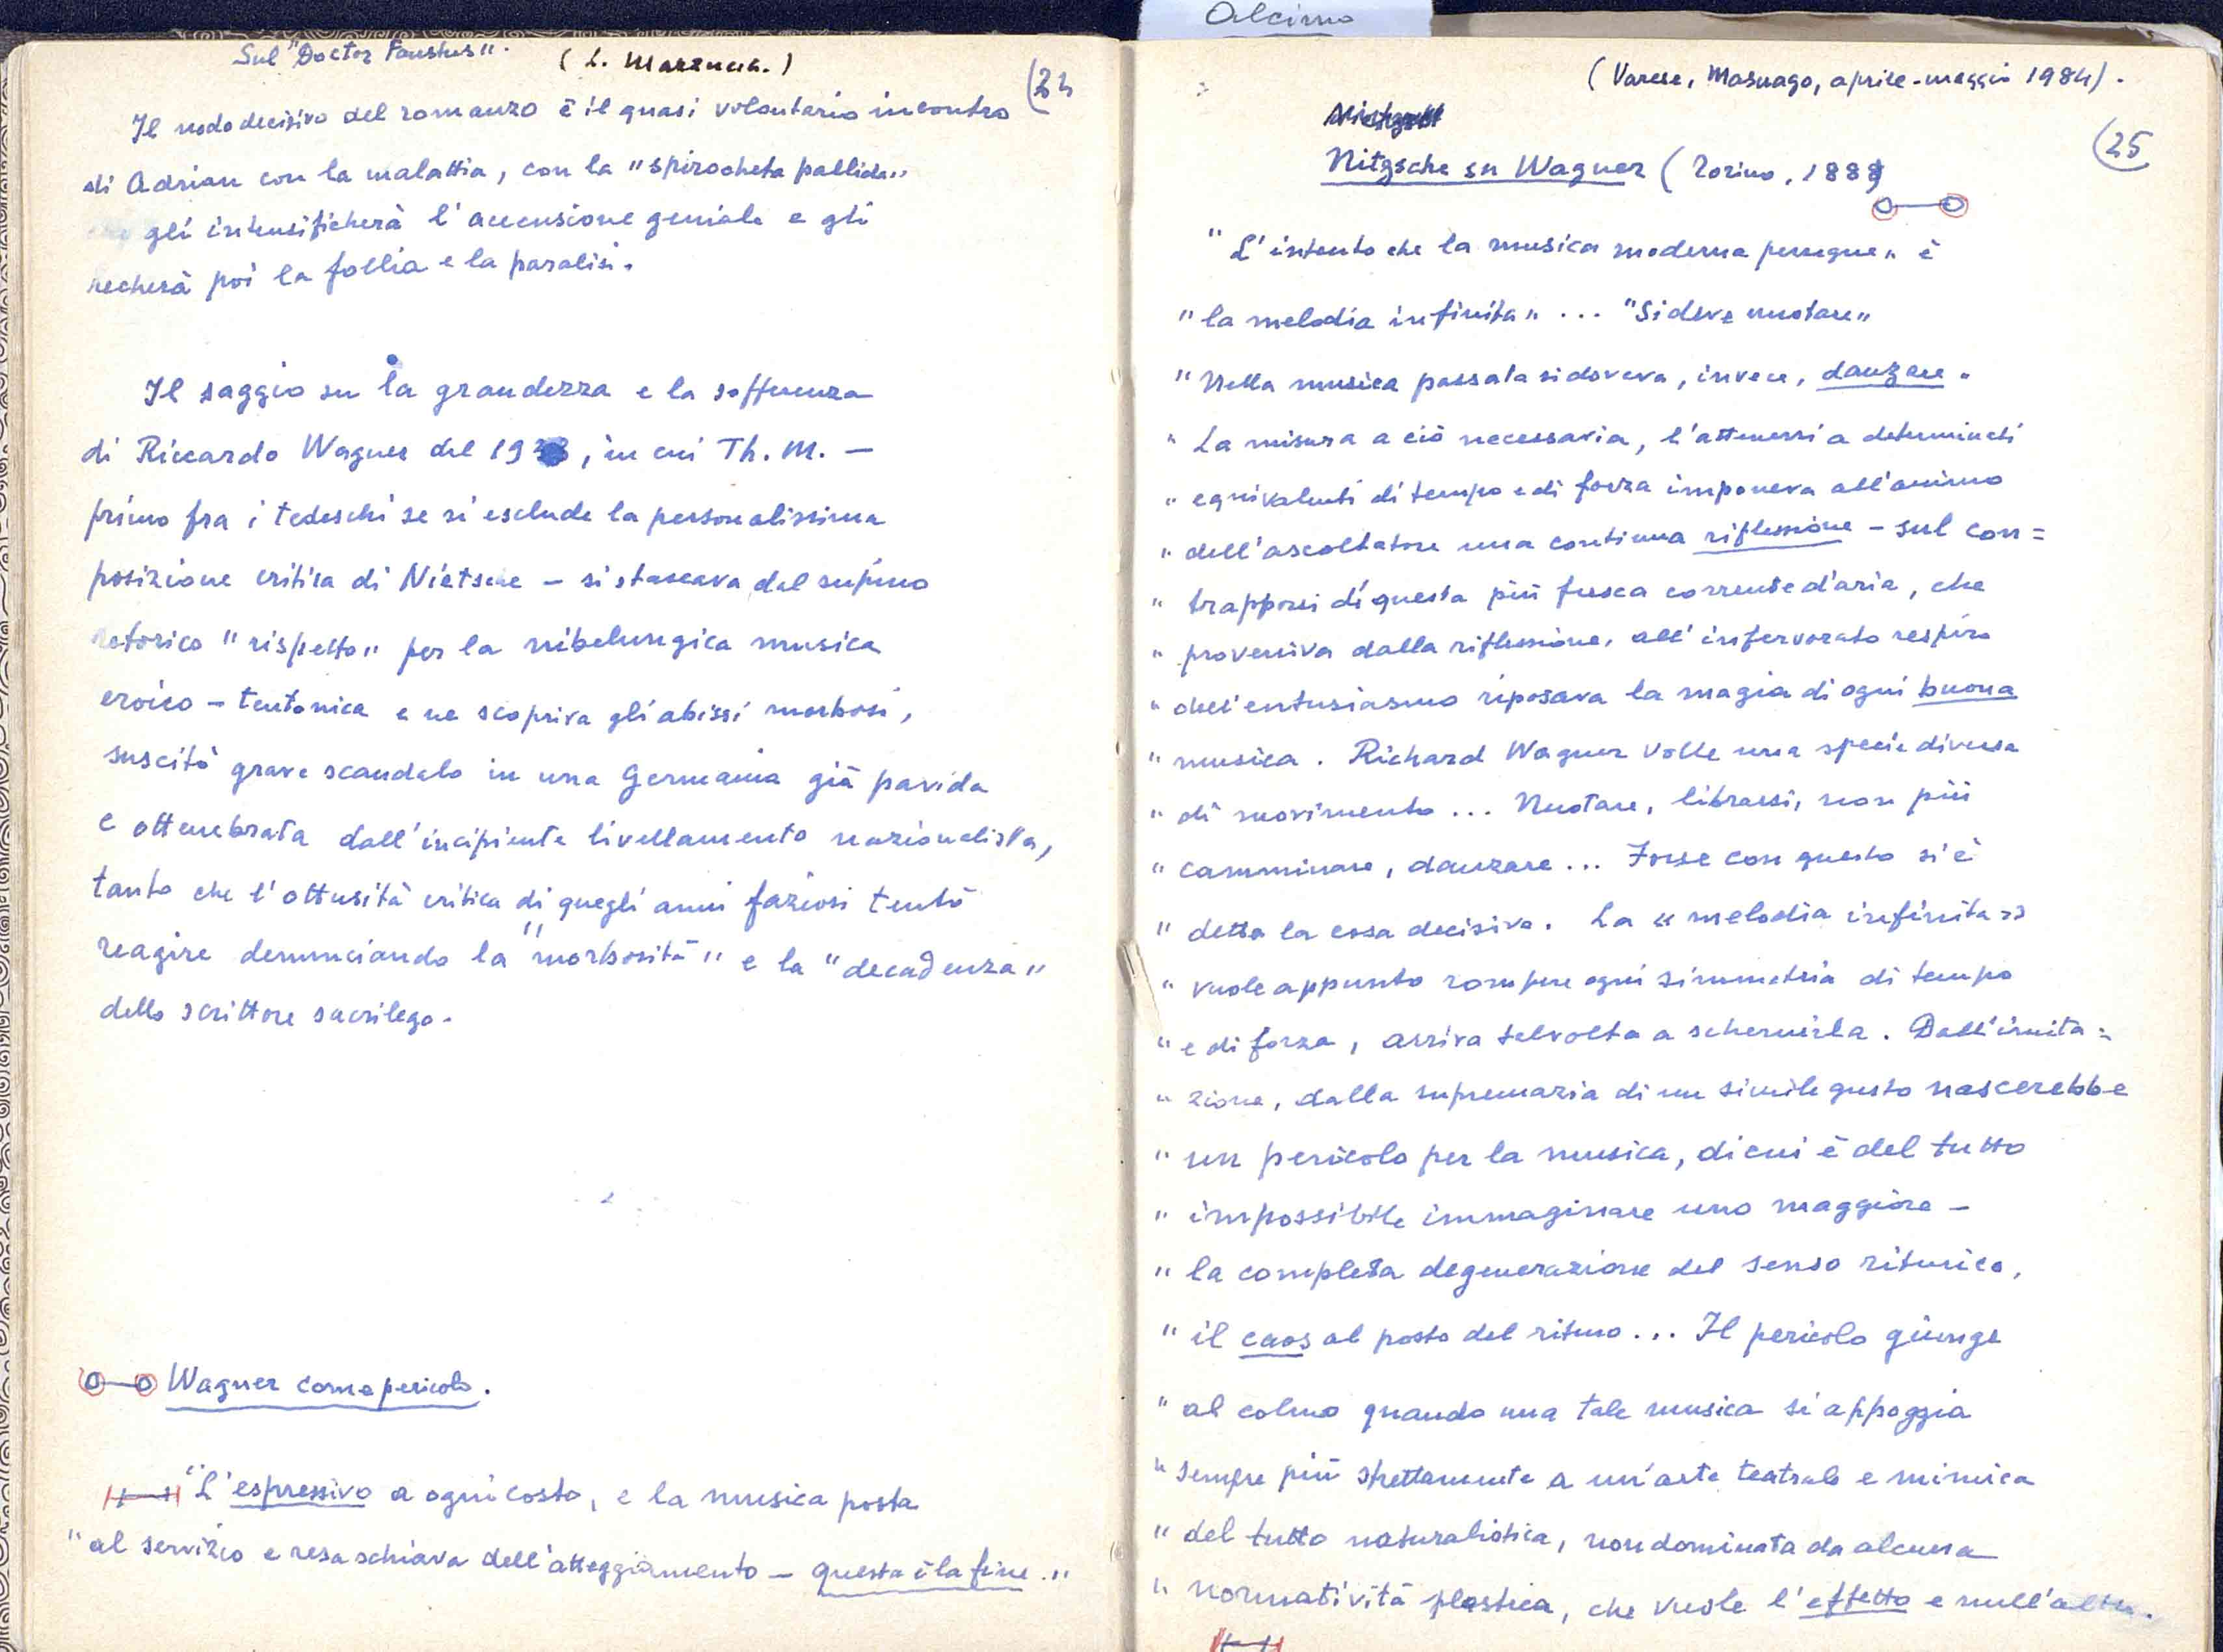 Sul "Doctor Faustus". (L. Mazzucch.)
(24
Il nodo decisivo del romanzo è il quasi volontario incontro
di Adrian con la malattia, con la "spirocheta pallida"
che gli intensificherà l'accensione geniale e gli
recherà poi la follia e la paralisi.
Il saggio su la grandezza e la sofferenza
di Riccardo Wagner del 1933, in cui Th. M. —
primo fra i tedeschi se si esclude la personalissima
posizione critica di Nietsche — si staccava dal supino
retorico "rispetto" per la nibelungica musica
eroico-teutonica e ne scopriva gli abissi morbosi,
suscitò grave scandalo in una Germania già pavida
e ottenebrata dall'incipiente livellamento nazionalista,
tanto che l'ottusità critica di quegli anni faziosi tentò
reagire denunciando la "morbosità" e la "decadenza"
dello scrittore sacrilego.
Wagner come pericolo.
"L'espressivo a ogni costo, e la musica posta
"al servizio e resa schiava dell'atteggiamento — questa è la fine."
Alcimo
(Varese, Masnago, aprile-maggio 1984).
(25
Nitzsche su Wagner (Torino, 1888
"L'intento che la musica moderna persegue" è
"la melodia infinita" ... "Si deve nuotare"
"Nella musica passata si doveva, invece, danzare.
"La misura a ciò necessaria, l'attenersi a determinati
"equivalenti di tempo e di forza imponeva all'animo
"dell'ascoltatore una continua riflessione — sul con=
"trapporsi di questa più fresca corrente d'aria, che
"proveniva dalla riflessione, all'infervorato respiro
"dell'entusiasmo riposava la magia di ogni buona
"musica. Richard Wagner volle una specie diversa
"di movimento... Nuotare, librarsi, non più
"camminare, danzare... Forse con questo si è
"detta la cosa decisiva. La «melodia infinita»
"vuole appunto rompere ogni simmetria di tempo
"e di forza, arriva talvolta a schernirla. Dall'imita=
"zione, dalla supremazia di un simile gusto nascerebbe
"un pericolo per la musica, di cui è del tutto
"impossibile immaginare uno maggiore —
"la completa degenerazione del senso ritmico,
"il caos al posto del ritmo... Il pericolo giunge
"al colmo quando una tale musica si appoggia
"sempre più strettamente a un'arte teatrale e mimica
"del tutto naturalistica, non dominata da alcuna
"normatività plastica, che vuole l'effetto e null'altro.